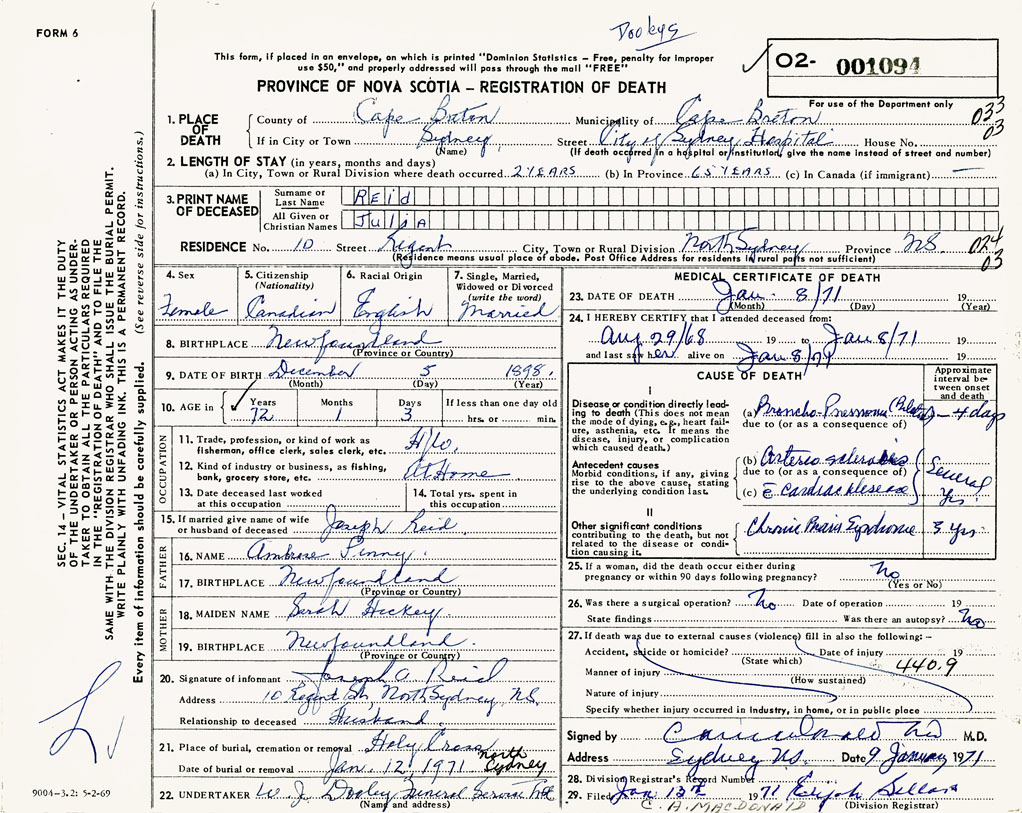 FORM 6
Dooleys
This form, if placed in an envelope, on which is printed "Dominion Statistics - Free, penalty for improper
use $50," and properly addressed will pass through the mail "FREE"
O2- 001094
PROVINCE OF NOVA SCOTIA - REGISTRATION OF DEATH
For use of the Department only
1. PLACE OF DEATH
County of Cape Breton Municipality of Cape Breton 033
If in City or Town Sydney Street City of Sydney Hospital House No. 03
(Name) (If death occurred in a hospital or institution, give the name instead of street and number)
2. LENGTH OF STAY (in years, months and days)
(a) In City, Town or Rural Division where death occurred 2 YEARS (b) In Province 65 YEARS (c) In Canada (if immigrant) —
3. PRINT NAME OF DECEASED
Surname or Last Name REid
All Given or Christian Names JuliA
RESIDENCE No. 10 Street Regent City, Town or Rural Division North Sydney Province NS 024
(Residence means usual place of abode. Post Office Address for residents in rural parts not sufficient) 03
4. Sex Female
5. Citizenship (Nationality) Canadian
6. Racial Origin English
7. Single, Married, Widowed or Divorced (write the word) Married
8. BIRTHPLACE Newfoundland
(Province or Country)
9. DATE OF BIRTH December 5 1898
(Month) (Day) (Year)
10. AGE in Years Months Days If less than one day old
72 1 3 hrs. or min.
OCCUPATION
11. Trade, profession, or kind of work as fisherman, office clerk, sales clerk, etc. H/W.
12. Kind of industry or business, as fishing, bank, grocery store, etc. At Home
13. Date deceased last worked at this occupation
14. Total yrs. spent in this occupation
15. If married give name of wife or husband of deceased Joseph Reid
FATHER
16. NAME Ambrose Penny
17. BIRTHPLACE Newfoundland
(Province or Country)
MOTHER
18. MAIDEN NAME Sarah Hickey
19. BIRTHPLACE Newfoundland
(Province or Country)
20. Signature of informant Joseph A Reid
Address 10 Regent St, North Sydney, NS.
Relationship to deceased Husband
21. Place of burial, cremation or removal Holy Cross North Sydney
Date of burial or removal Jan. 12, 1971
22. UNDERTAKER W. J. Dooley Funeral Service
(Name and address)
MEDICAL CERTIFICATE OF DEATH
23. DATE OF DEATH Jan. 8/71 19
(Month) (Day) (Year)
24. I HEREBY CERTIFY that I attended deceased from:
Aug 29/68 19 to Jan 8/71 19
and last saw her alive on Jan 8/71 19
CAUSE OF DEATH
Approximate interval between onset and death
I
Disease or condition directly leading to death (This does not mean the mode of dying, e.g., heart failure, asthenia, etc. It means the disease, injury, or complication which caused death.)
(a) Broncho-Pneumonia 4 days
due to (or as a consequence of)
Antecedent causes
Morbid conditions, if any, giving rise to the above cause, stating the underlying condition last.
(b) Arteriosclerosis
due to (or as a consequence of) Several
(c) c̄ Cardiac disease Yrs.
II
Other significant conditions contributing to the death, but not related to the disease or condition causing it.
Chronic Brain Syndrome 3 yrs.
25. If a woman, did the death occur either during pregnancy or within 90 days following pregnancy? No
(Yes or No)
26. Was there a surgical operation? No Date of operation 19
State findings Was there an autopsy? No
27. If death was due to external causes (violence) fill in also the following:-
Accident, suicide or homicide? Date of injury 19
(State which) 440.9
Manner of injury
(How sustained)
Nature of injury
Specify whether injury occurred in industry, in home, or in public place
Signed by M.D.
Address Sydney NS. Date 9 January 1971
28. Division Registrar's Record Number
29. Filed Jan 13th 1971
C. A. MACDONALD (Division Registrar)
SEC. 14 - VITAL STATISTICS ACT MAKES IT THE DUTY
OF THE UNDERTAKER OR PERSON ACTING AS UNDER-
TAKER TO OBTAIN ALL THE PARTICULARS REQUIRED
IN THE "REGISTRATION OF DEATH" AND TO FILE THE
SAME WITH THE DIVISION REGISTRAR WHO SHALL ISSUE THE BURIAL PERMIT.
WRITE PLAINLY WITH UNFADING INK. THIS IS A PERMANENT RECORD.
Every item of information should be carefully supplied. (See reverse side for instructions.)
9004-3.2: 5-2-69